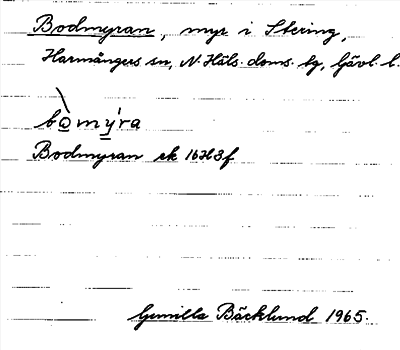 Bodmyran, myr i Stering,
Harmångers sn, N. Häls. doms. bg, Gävl. l.
bo̠mý̠ra
Bodmyran ek 16H3f
Gunilla Bäcklund 1965.